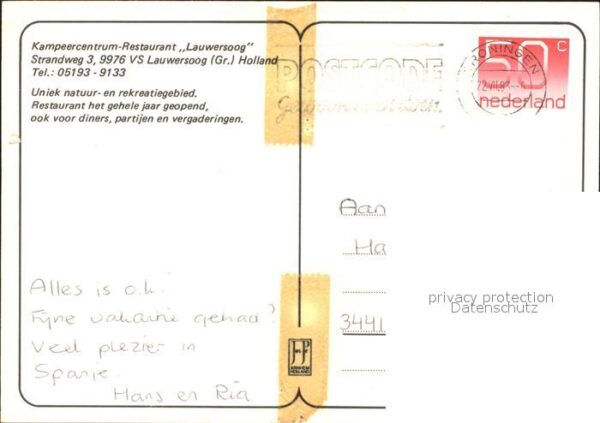 Kampeercentrum-Restaurant „Lauwersoog"
Strandweg 3, 9976 VS Lauwersoog (Gr.) Holland
Tel.: 05193 - 9133
Uniek natuur- en rekreatiegebied.
Restaurant het gehele jaar geopend,
ook voor diners, partijen en vergaderingen.
POSTCODE
Gewoon even doen.
GRONINGEN
50 c
nederland
Aan
Ha
3441
privacy protection
Datenschutz
Alles is o.k.
Fijne vakantie gehad?
Veel plezier in
Spanje.
Hans en Ria
JosPé
ARNHEM
HOLLAND